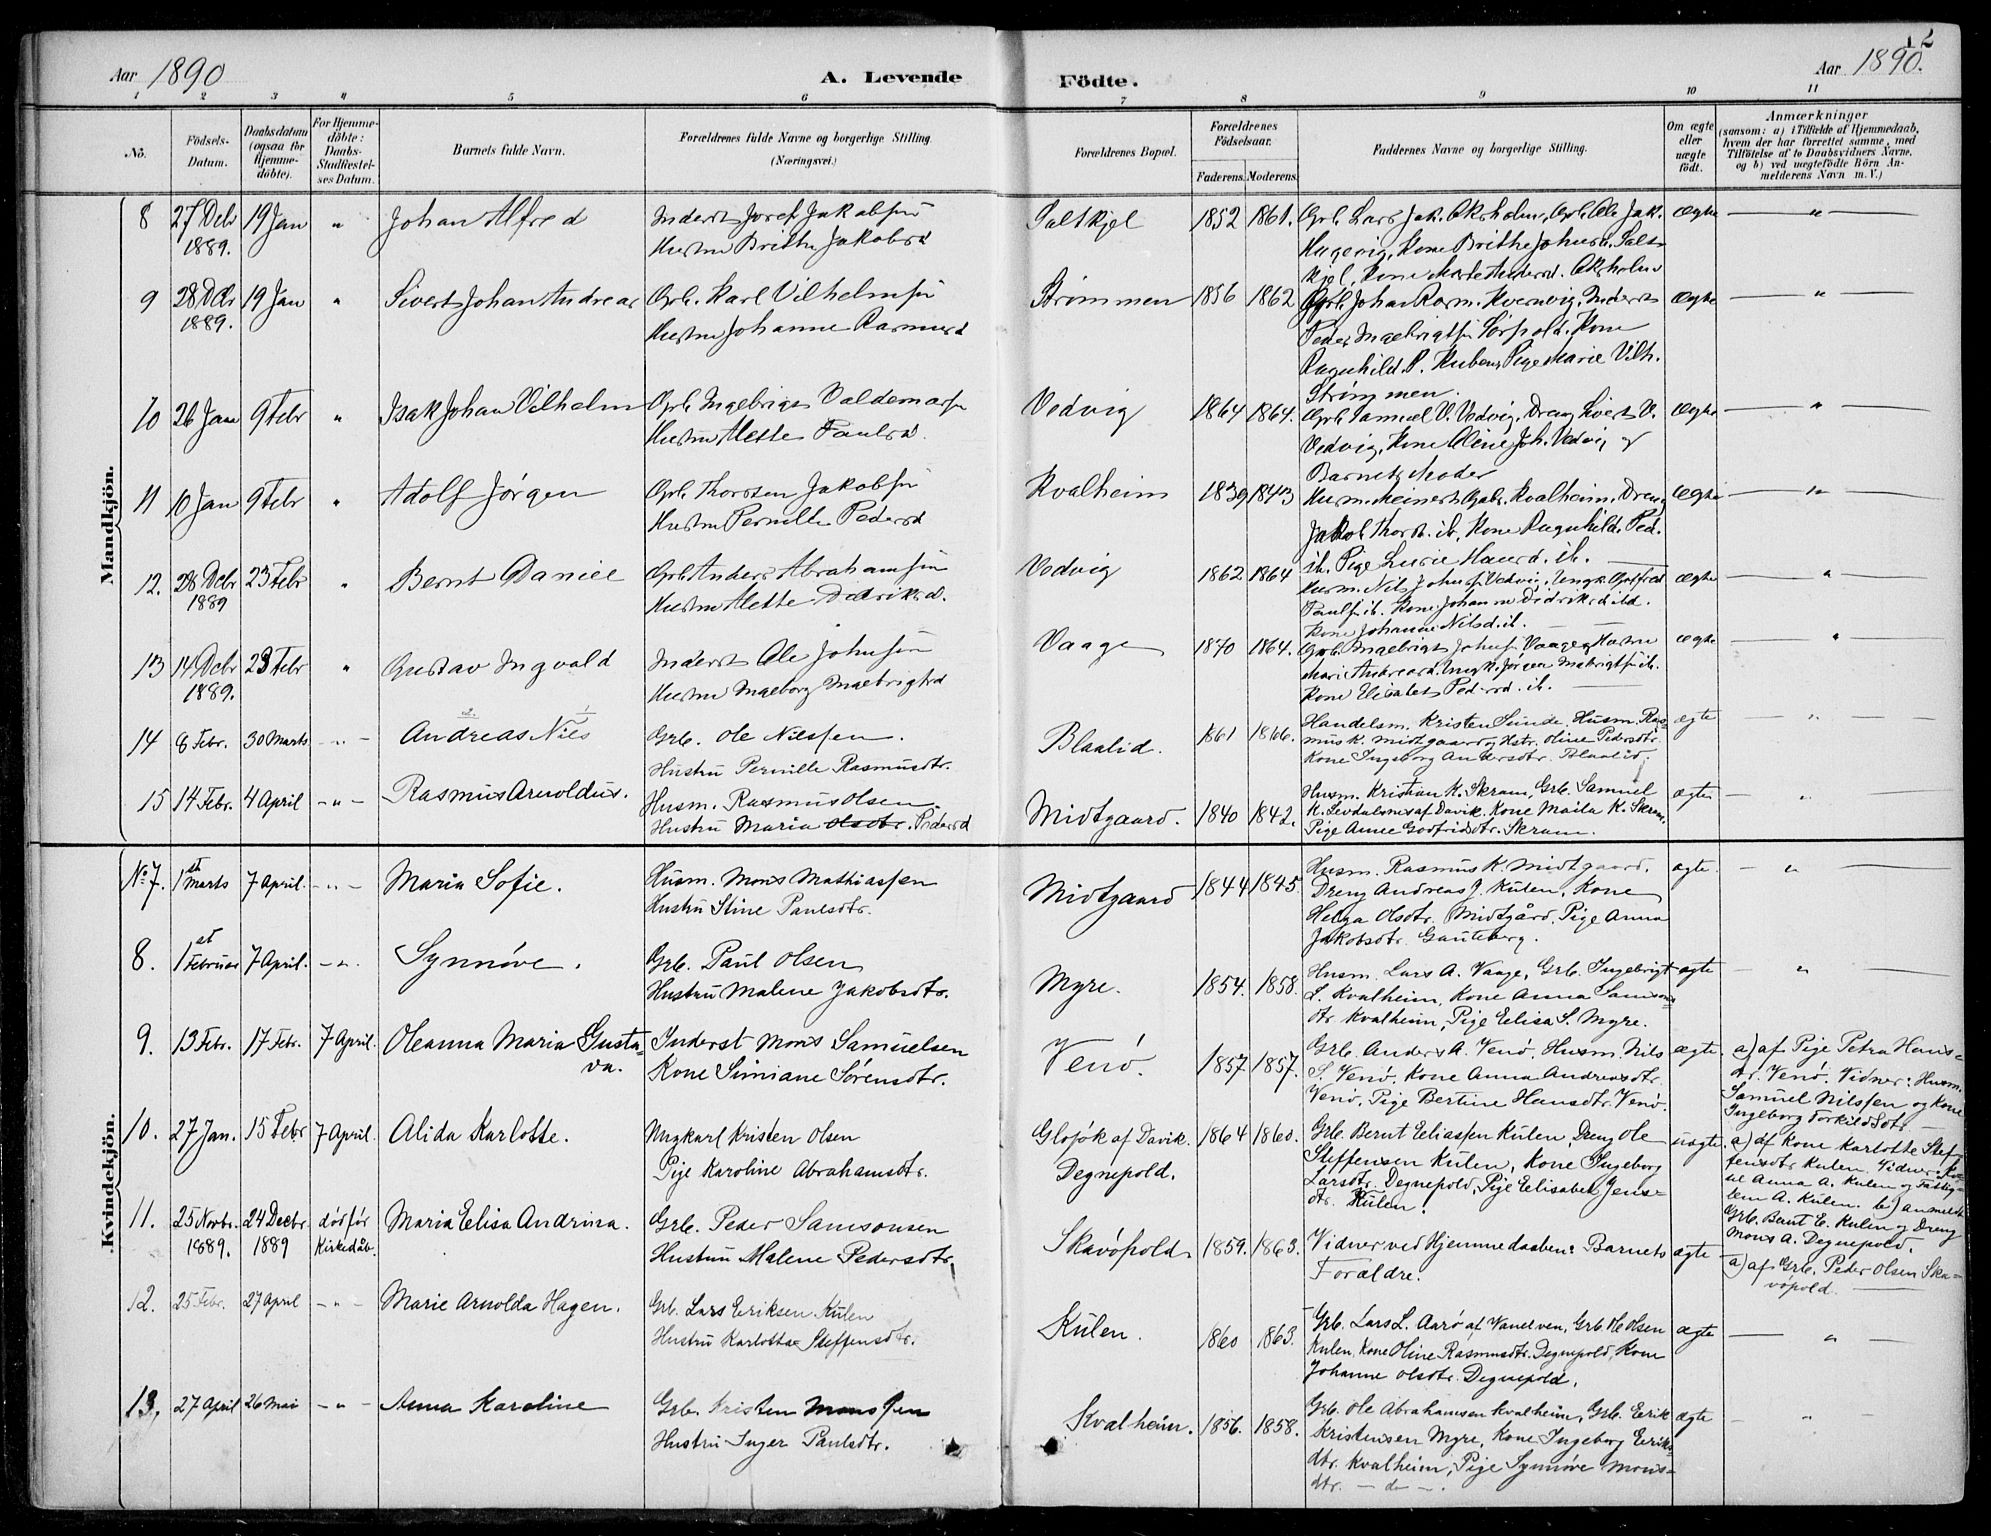 12
Aar 1890
A. Levende
Födte.
Aar 1890.
1 2 3 4 5 6 7 8 9 10 11
No.
Födsels-Datum.
Daabsdatum (ogsaa for Hjemme-döbte).
For Hjemme-döbte: Daabs-Stadfæstel-ses Datum.
Barnets fulde Navn.
Forældrenes fulde Navne og borgerlige Stilling. (Næringsvei.)
Forældrenes Bopæl.
Forældrenes Födselsaar.
Faderens. Moderens.
Faddernes Navne og borgerlige Stilling.
Om ægte eller uægte födt.
Anmærkninger
(saasom: a) i Tilfælde af Hjemmedaab, hvem der har forrettet samme, med Tilföielse af to Daabsvidners Navne, og b) ved uægtefödte Börn An-melderens Navn m. V.)
Mandkjön.
8 27 Debr 1889. 19 Jan " Johan Alfred
Inderst Josef Jakobsen
Hustru Brithe Jakobsd
Saltskjel 1852 1861.
Grb. Lars Jak. Aksholm, Grb. Ole Jak.
Hugevig, Kone Brithe Johnsd. Salt
skjel, Kone Marte Andersd. Aksholm
ægte "
9 28 Dcr 1889. 19 Jan " Sivert Johan Andreas
Grb. Karl Vilhelmsen
Hustru Johanne Rasmusd
Strømmen 1856 1862
Grb. Johan Rasm. Kvernvig, Inderst
Peder Ingebrigtsen Sørpold. Kone
Ragnhild P. Huben, Pige Marie Vilh.
Strømmen.
ægte "
10 26 Jan 9 Febr " Isak Johan Vilhelm
Grb. Ingebrigt Valdemarsen
Hustru Alette Paulsd.
Vedvig 1864 1864.
Grb. Samuel V. Vedvig. Dreng Sivert V.
Vedvig, Kone Oline Joh. Vedvig og
Barnets Moder
ægte "
11 10 Jan 9 Febr " Adolf Jørgen
Grb. Thorsten Jakobsen
Hustru Pernille Pedersd
Kvalheim 1839 1843
Husm. Meinert Gabr. Kvalheim, Dreng
Jakob Thorst. ib, Kone Ragnhild Ped.
ib. Pige Lusie Hansd. ib.
ægte "
12. 28 Debr 1889 23 Febr " Bernt Daniel
Grb. Anders Abrahamsen
Hustru Alette Didriksd.
Vedvig 1862 1864
Husm. Nils Johnsen Vedvig, Ungk. Gotfred
Paulsen ib. Kone Johanne Didriksd ibd.
Kone Johanne Nilsd. ib.
ægte "
13 14 Debr 1889. 23 Febr " Gustav Ingvald
Inderst Ole Johnsen
Hustru Ingeborg Ingebrigtsd
Vaage 1870 1864.
Grb. Ingebrigt Johnsen Vaage og Hustru
Mari Andreasd. Ungk. Jørgen Ingebrigtsen ib.
Kone Elisabet Pedersd. ib.
ægte "
2. 1
14 8 Febr. 30 Marts - " - Andreas Nils
Grb. Ole Nilssen.
Hustru Pernille Rasmusdtr.
Blaalid. 1861 1866.
Handelsm. Kristen Sunde, Husm. Ras-
mus K. Midtgaard og Hstr. Oline Pedersdtr.
Kone Ingeborg Andersdtr. Blaalid.
ægte "
15 14 Febr. 4 April - " - Rasmus Arnoldus.
Husm. Rasmus Olsen.
Hustru Maria Olsdtr. Pedersd
Midtgaard. 1840 1842.
Husm. Kristian K. Skram, Grb. Samuel
K. Levdalsnes af Davik, Kone Maila K. Skram,
Pige Anne Godtfridsdtr. Skram.
ægte "
Kvindekjön.
No 7. 1st Marts 7 April. - " - Maria Sofie.
Husm. Mons Mathiassen
Hustru Stine Paulsdtr.
Midtgaard 1844 1845.
Husm. Rasmus K. Midtgaard.
Dreng Andreas J. Kulen, Kone
Helga Olsdtr. Midtgård, Pige Anna
Jakobsdtr. Gauteberg.
ægte. "
8. 1st Februar 7 April. - " - Synnøve.
Grb. Paul Olsen
Hustru Malene Jakobsdtr.
Myre. 1854. 1858.
Husm. Lars A. Vaage, Grb. Ingebrigt
L. Kvalheim, Kone Anna Samsons
dtr Kvalheim, Pige Elisa S. Myre.
ægte "
9. 13 Febr. 17 Febr. 7 April. Oleanna Maria Gusta-
va.
Inderst Mons Samuelsen
Kone Simiane Sørensdtr.
Venö. 1857 1857.
Grb. Anders A. Venö. Husm. Nils
S. Venö, Kone Anna Andreasdtr.
Venö, Pige Bertine Hansdtr. Venö.
ægte.
a) af Pige Petra Hans-
dtr. Venö. Vidner: Husm.
Samuel Nilssen og Kone
Ingeborg Torkildsdtr.
10. 27 Jan. 15 Febr 7 April. Alida Karlotte.
Ungkarl Kristen Olsen
Pige Karoline Abrahamsdtr.
Glosøk af Davik. Degnepold. 1864 1860.
Grb. Bernt Eliassen Kulen, Dreng Ole
Steffensen Kulen, Kone Ingeborg
Larsdtr. Degnepold, Pige Elisabet Jens-
dtr. Kulen.
uægte.
a) af Kone Karlotte Stef-
fensdtr Kulen. Vidner:
Anna A. Kulen og Fattig-
lem A. Kulen. b) anmeldt
Grb. Bernt E. Kulen og Dreng
Mons A. Degnepold.
11. 25 Novbr. 1889. 24 Decbr. 1889 död før Kirkedåb. Maria Elisa Andrina.
Grb. Peder Samsonsen
Hustru Malene Pedersdtr.
Skavöpold. 1859. 1863.
Vidner ved Hjemmedaaben: Barnets
Forældre.
ægte
a) af Grb. Peder Olsen Ska-
vöpold.
12. 25 Febr. 27 April - " - Marie Arnolda Hagen.
Grb. Lars Eriksen Kulen
Hustru Karlotte Steffensdtr.
Kulen. 1860 1863.
Grb. Lars L. Aarö af Vanelven, Grb. Ole Olsen
Kulen, Kone Oline Rasmusdtr. Degnepold, Kone
Johanne Olsdtr. Degnepold.
ægte "
13. 27 April 26 Mai - " - Anna Karoline
Grb. Kristen Monssen
Hustru Inger Paulsdtr.
Kvalheim. 1856. 1858.
Grb. Ole Abrahamsen Kvalheim, Grb. Eerik
Kristensen Myre, Kone Ingeborg Eeriks-
dtr. Kvalheim, Pige Synnöve Mons-
dtr. - do -.
ægte "